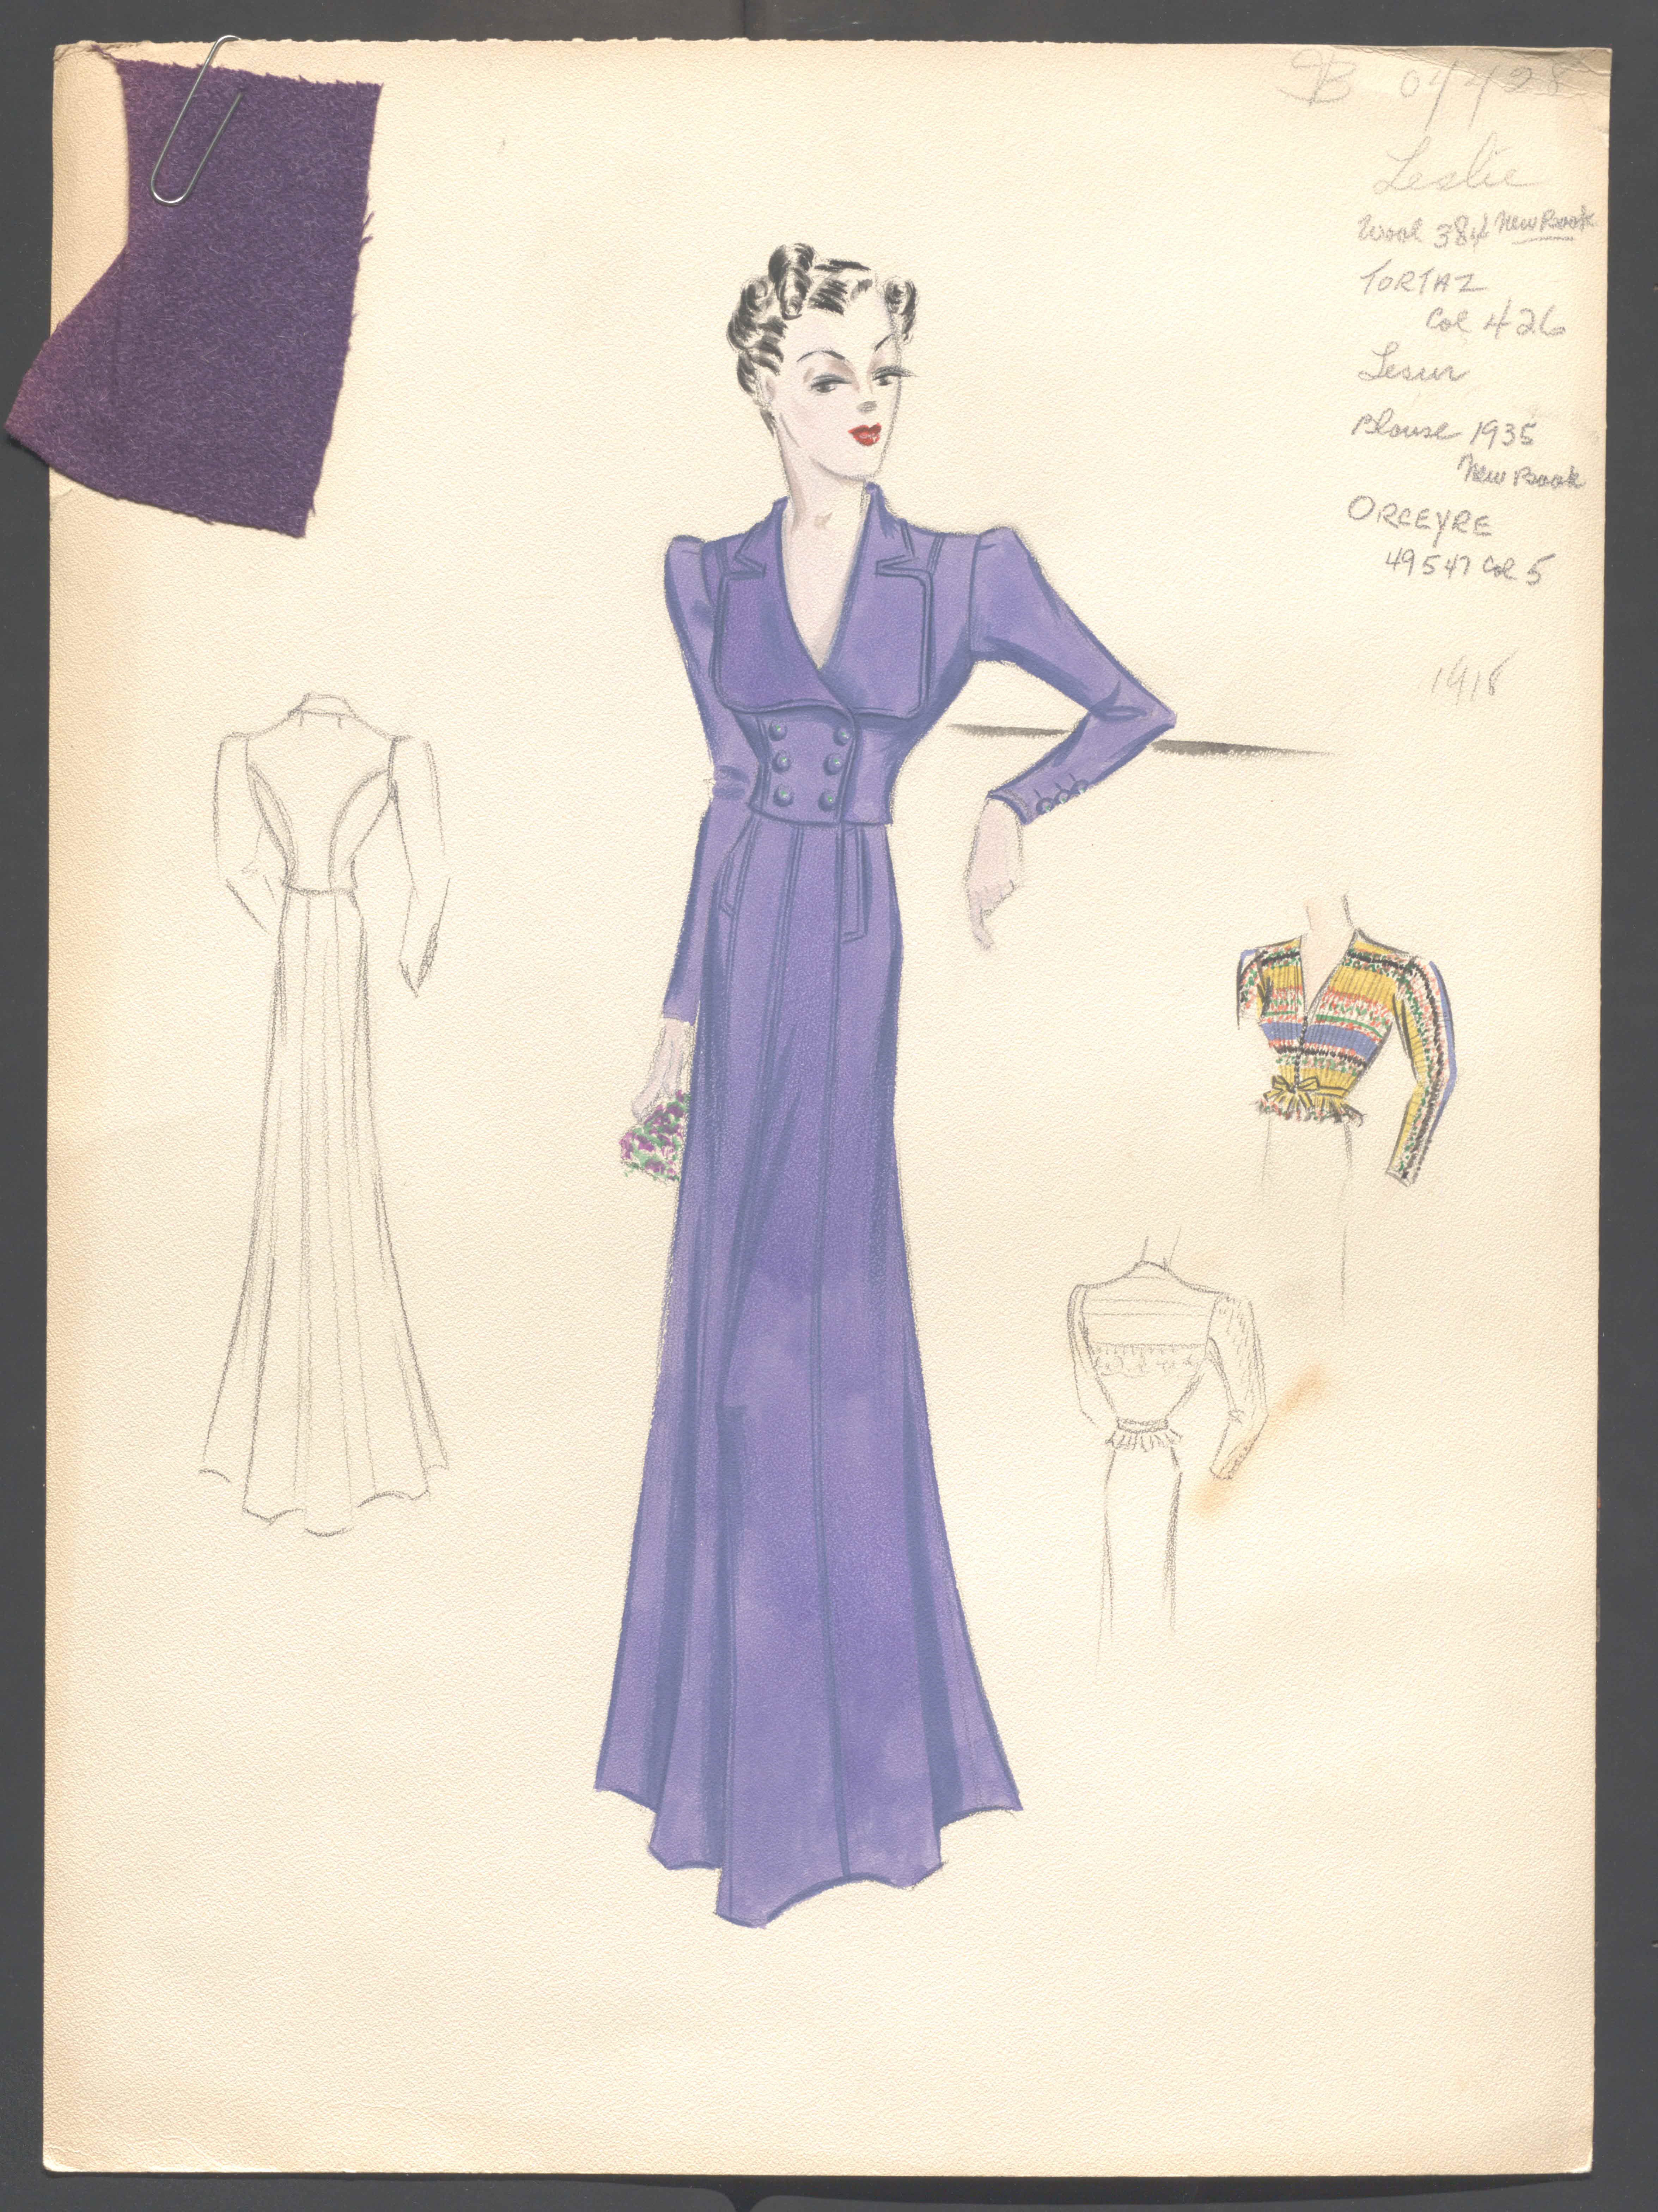 04428
Leslie
Wool 384 New Book
TORTAZ
Col 426
Lesur
Blouse 1935
New Book
ORCEYRE
49547 Col 5
1918